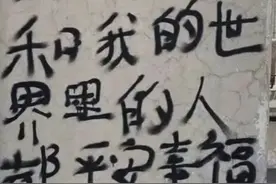 和我的世
界里的人
都平安幸福